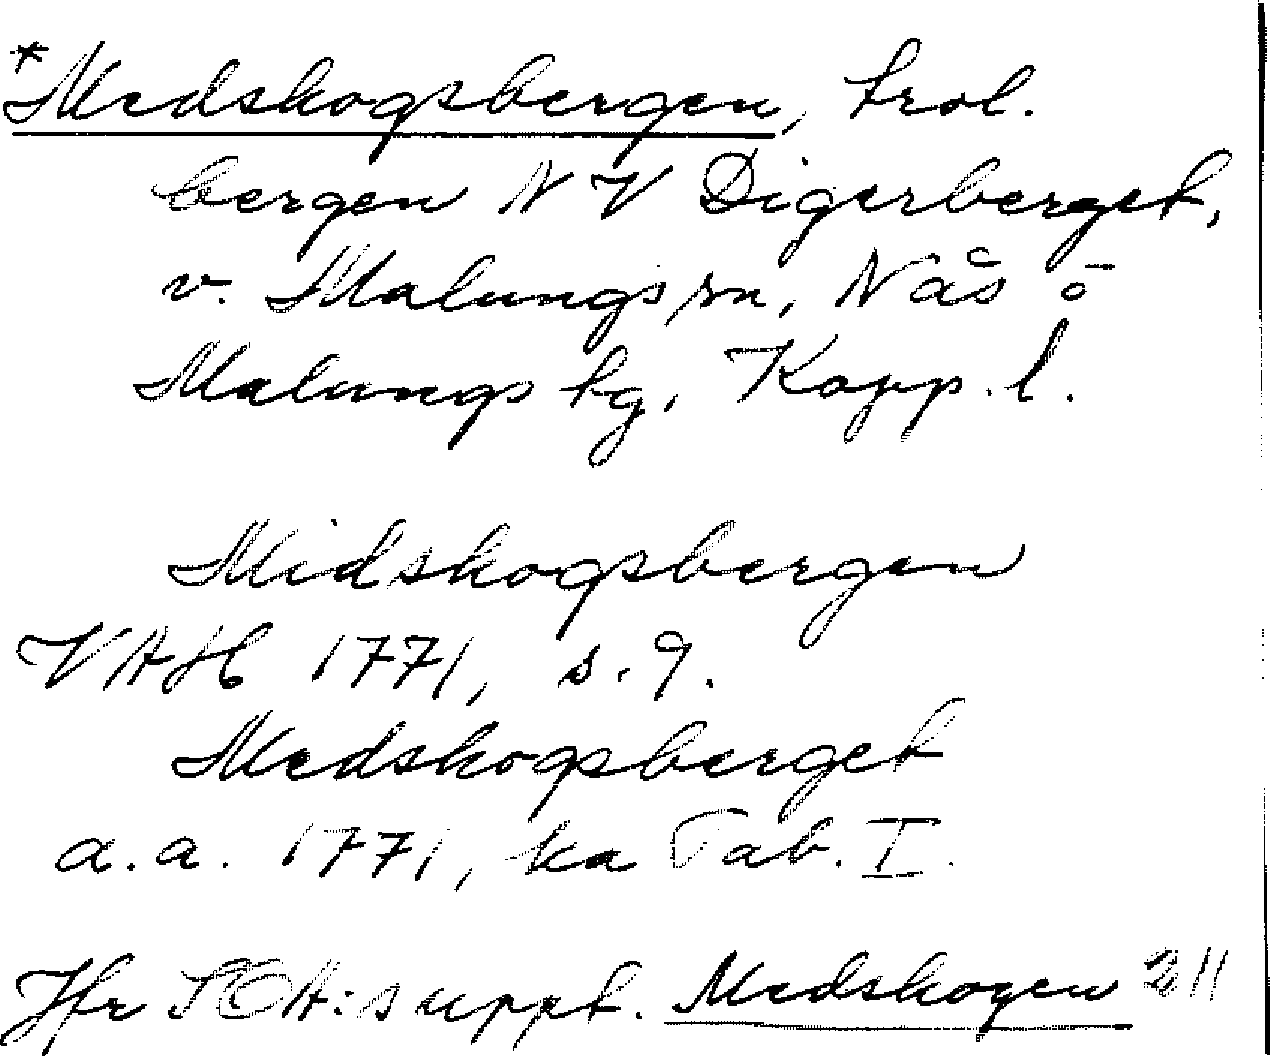 *Medskogsbergen, trol.
bergen NV Digerberget,
v. Malungs sn, Nås o
Malungs tg, Kopp. l.
Midskogsbergen
VAH 1771, s. 9.
Medskogsberget
a.a. 1771, ka Tab. I.
Jfr SOH:s uppt. Medskogen